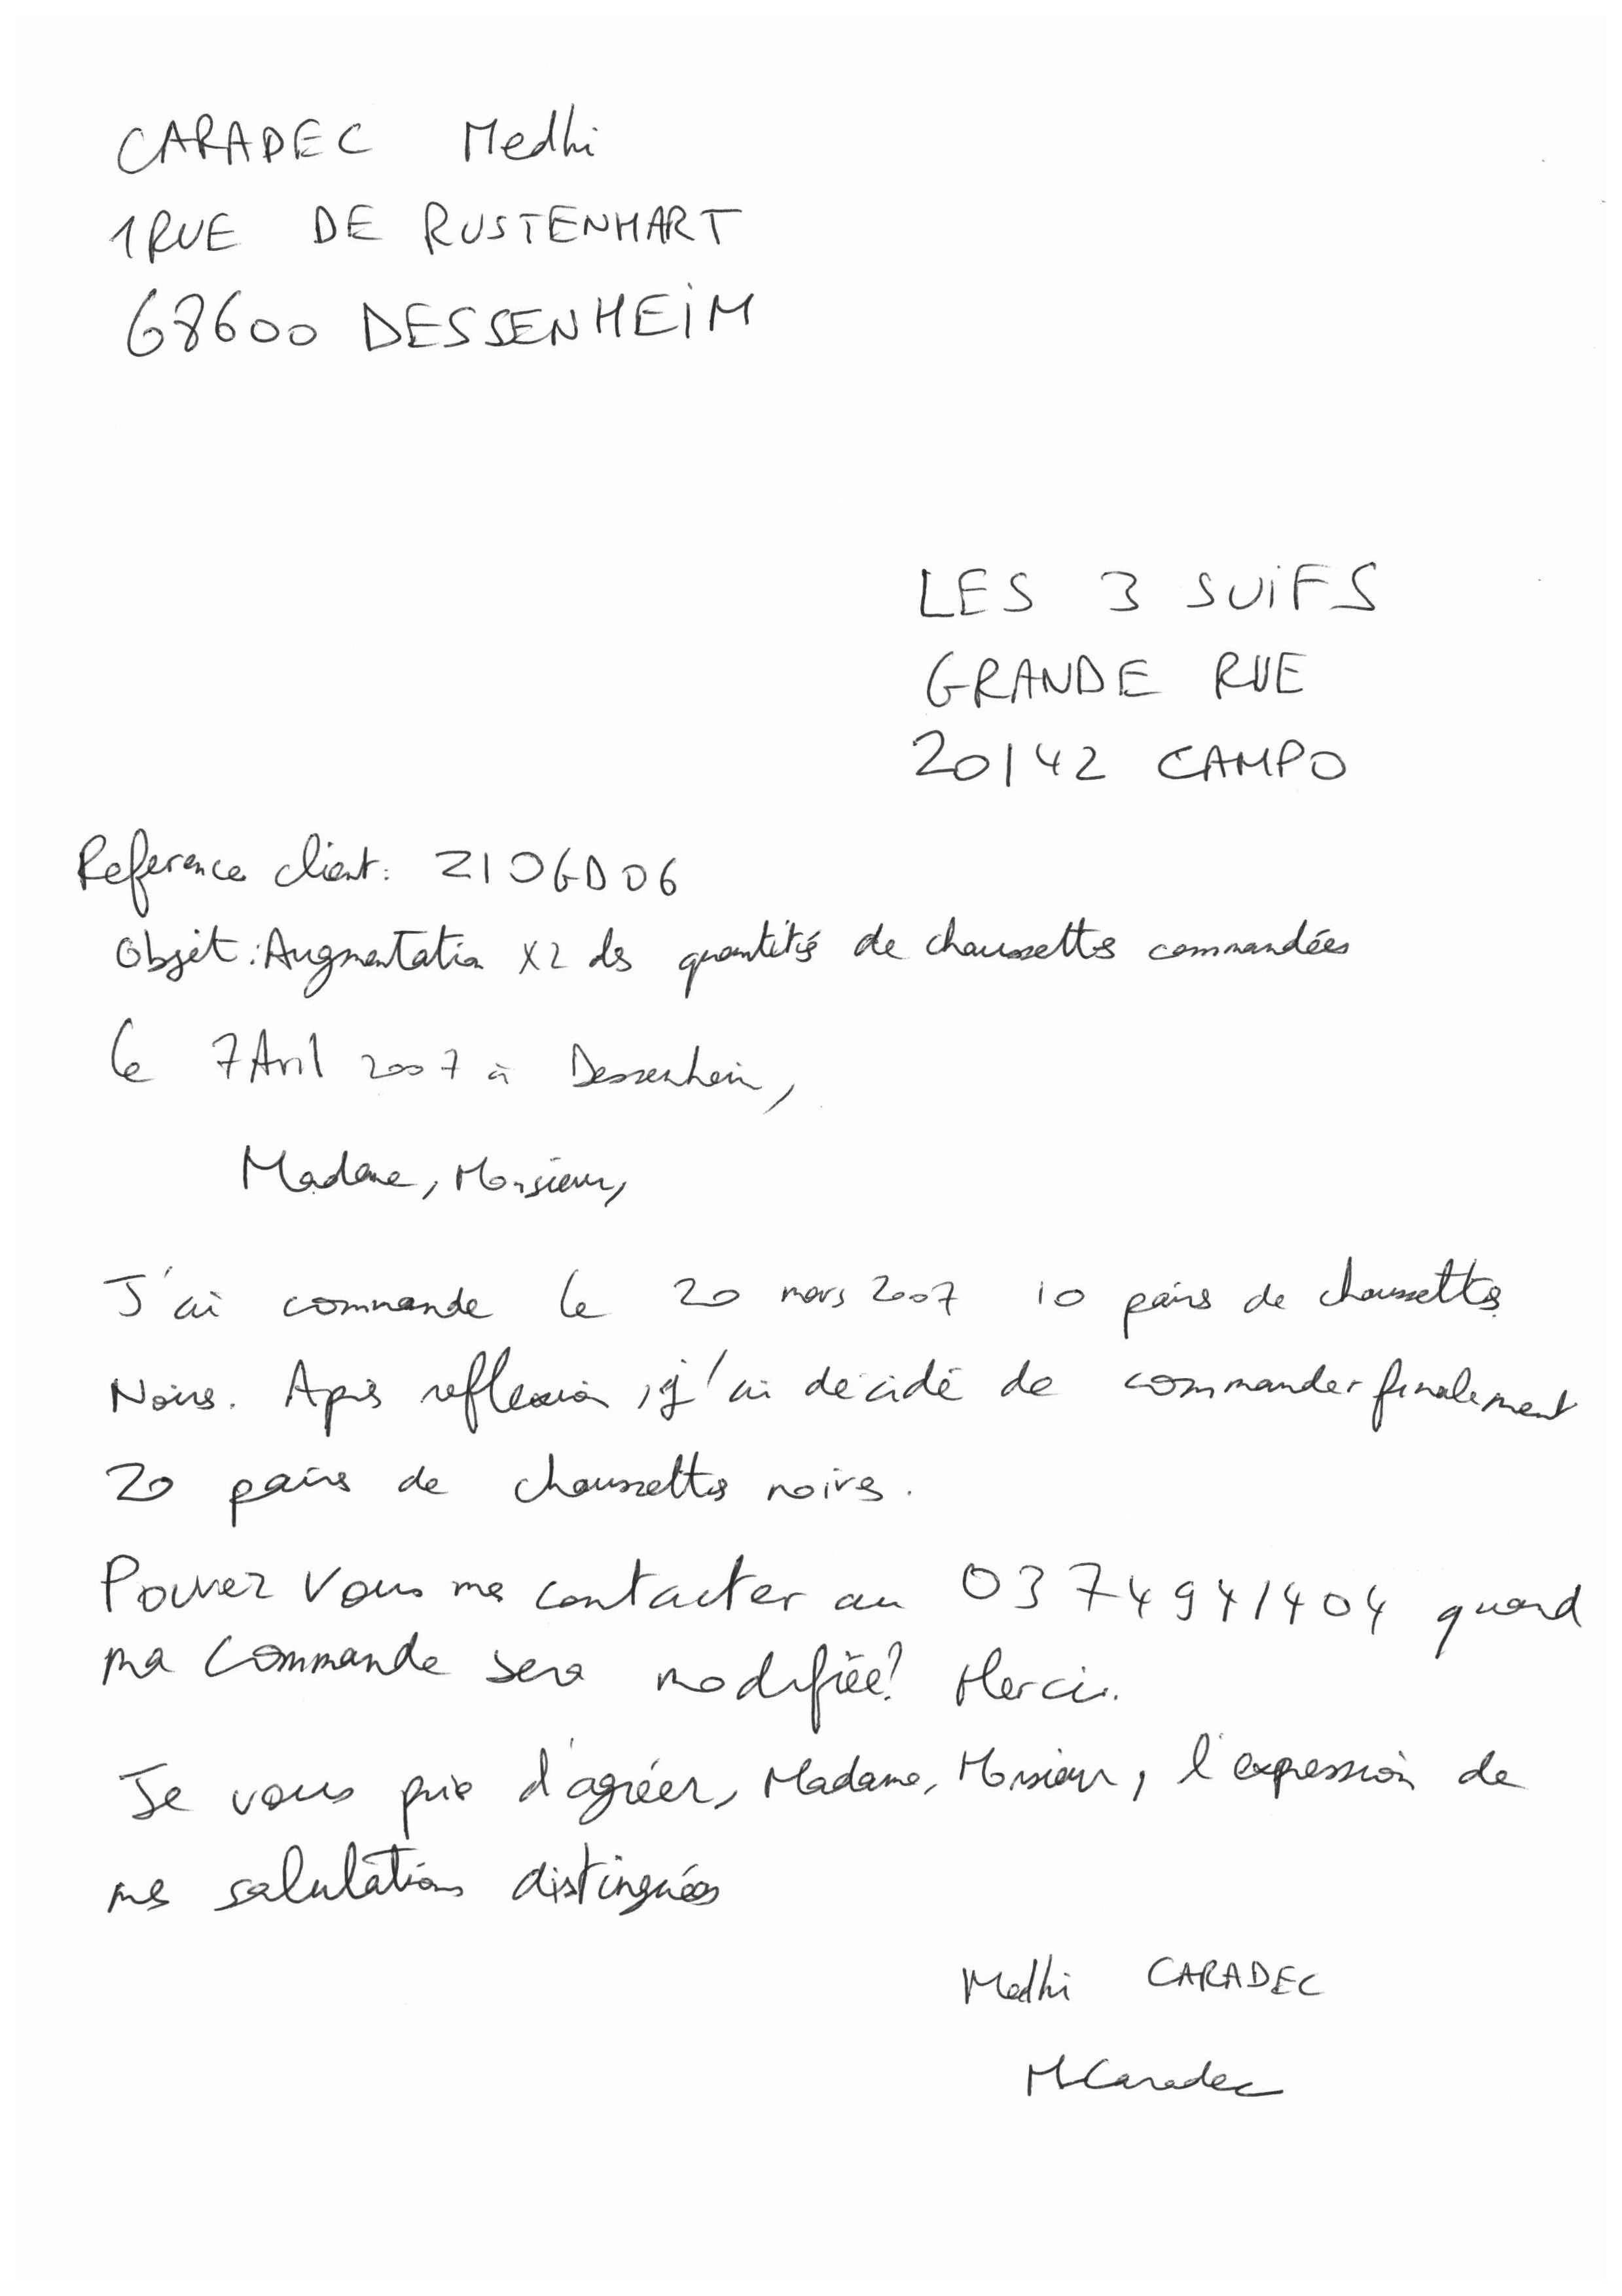 CARADEC Medhi
1 RUE DE RUSTENHART
68600 DESSENHEIM
LES 3 SUIFS
GRANDE RUE
20142 CAMPO
Reference client: ZIOGD06
Objet : Augmentation X2 des quantités de chaussettes commandées
Le 7 Avril 2007 à Dessenheim,
Madame, Monsieur,
J'ai commande le 20 mars 2007 10 paires de chaussettes
Noires. Après reflexion, j'ai décidé de commander finalement
20 paires de chaussettes noires.
Pouvez vous me contacter au 0374941404 quand
ma commande sera modifiée? Merci.
Je vous prie d'agréer, Madame, Monsieur, l'expression de
mes salutations distinguées
Medhi CARADEC
M Caradec